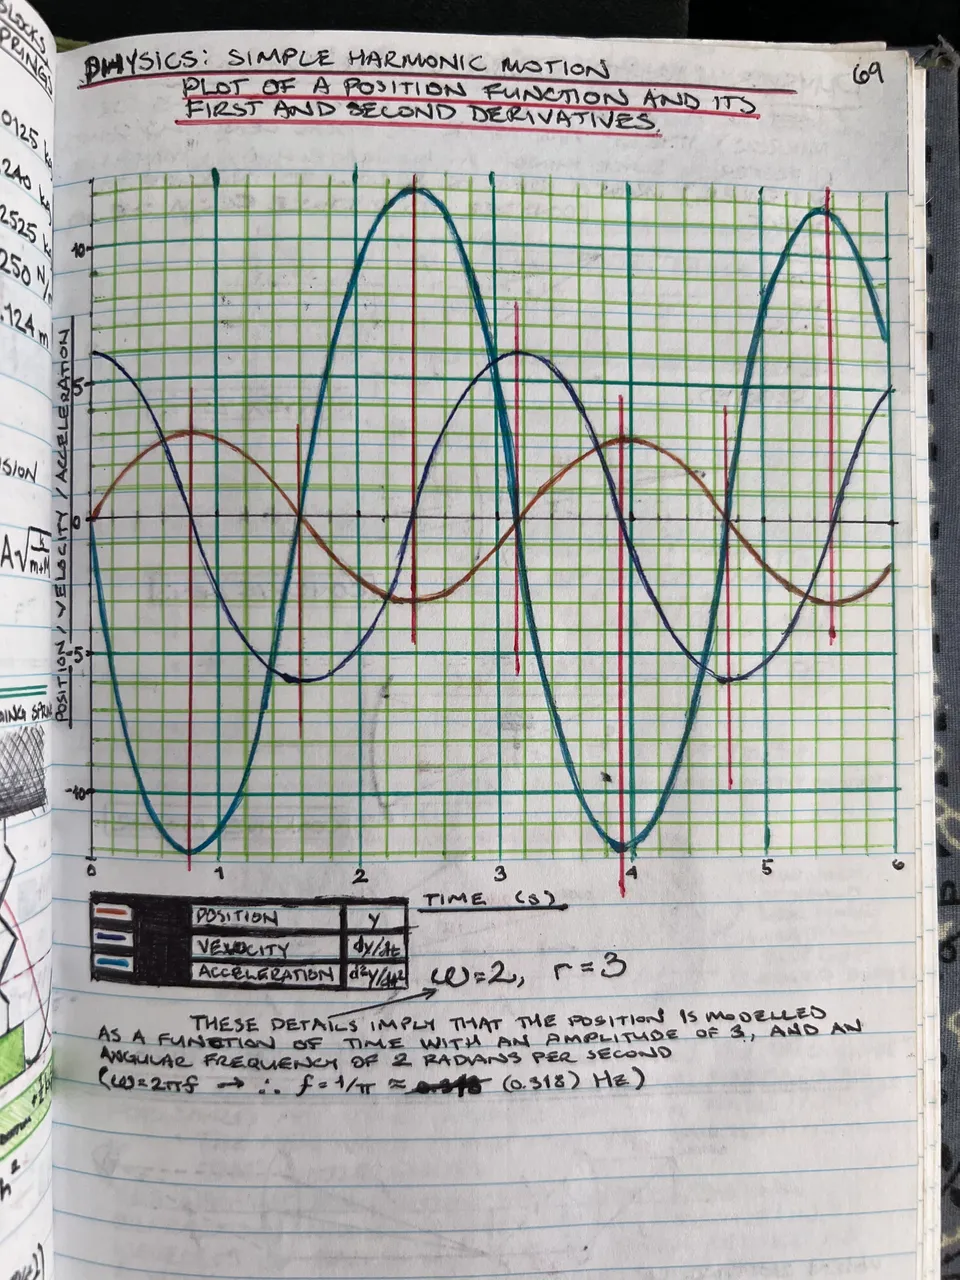 BLOCKS
SPRINGS
0125 kg
240 kg
2525 kg
250 N/m
.124 m
A√
PHYSICS: SIMPLE HARMONIC MOTION
69
PLOT OF A POSITION FUNCTION AND ITS
FIRST AND SECOND DERIVATIVES.
POSITION / VELOCITY / ACCELERATION
10
5
0
-5
-10
0 1 2 3 4 5 6
TIME (s)
POSITION y
VELOCITY dy/dt
ACCELERATION d²y/dt²
ω=2, r=3
THESE DETAILS IMPLY THAT THE POSITION IS MODELLED
AS A FUNCTION OF TIME WITH AN AMPLITUDE OF 3, AND AN
ANGULAR FREQUENCY OF 2 RADIANS PER SECOND
(ω=2πf → ∴ f=1/π ≈ (0.318) Hz)